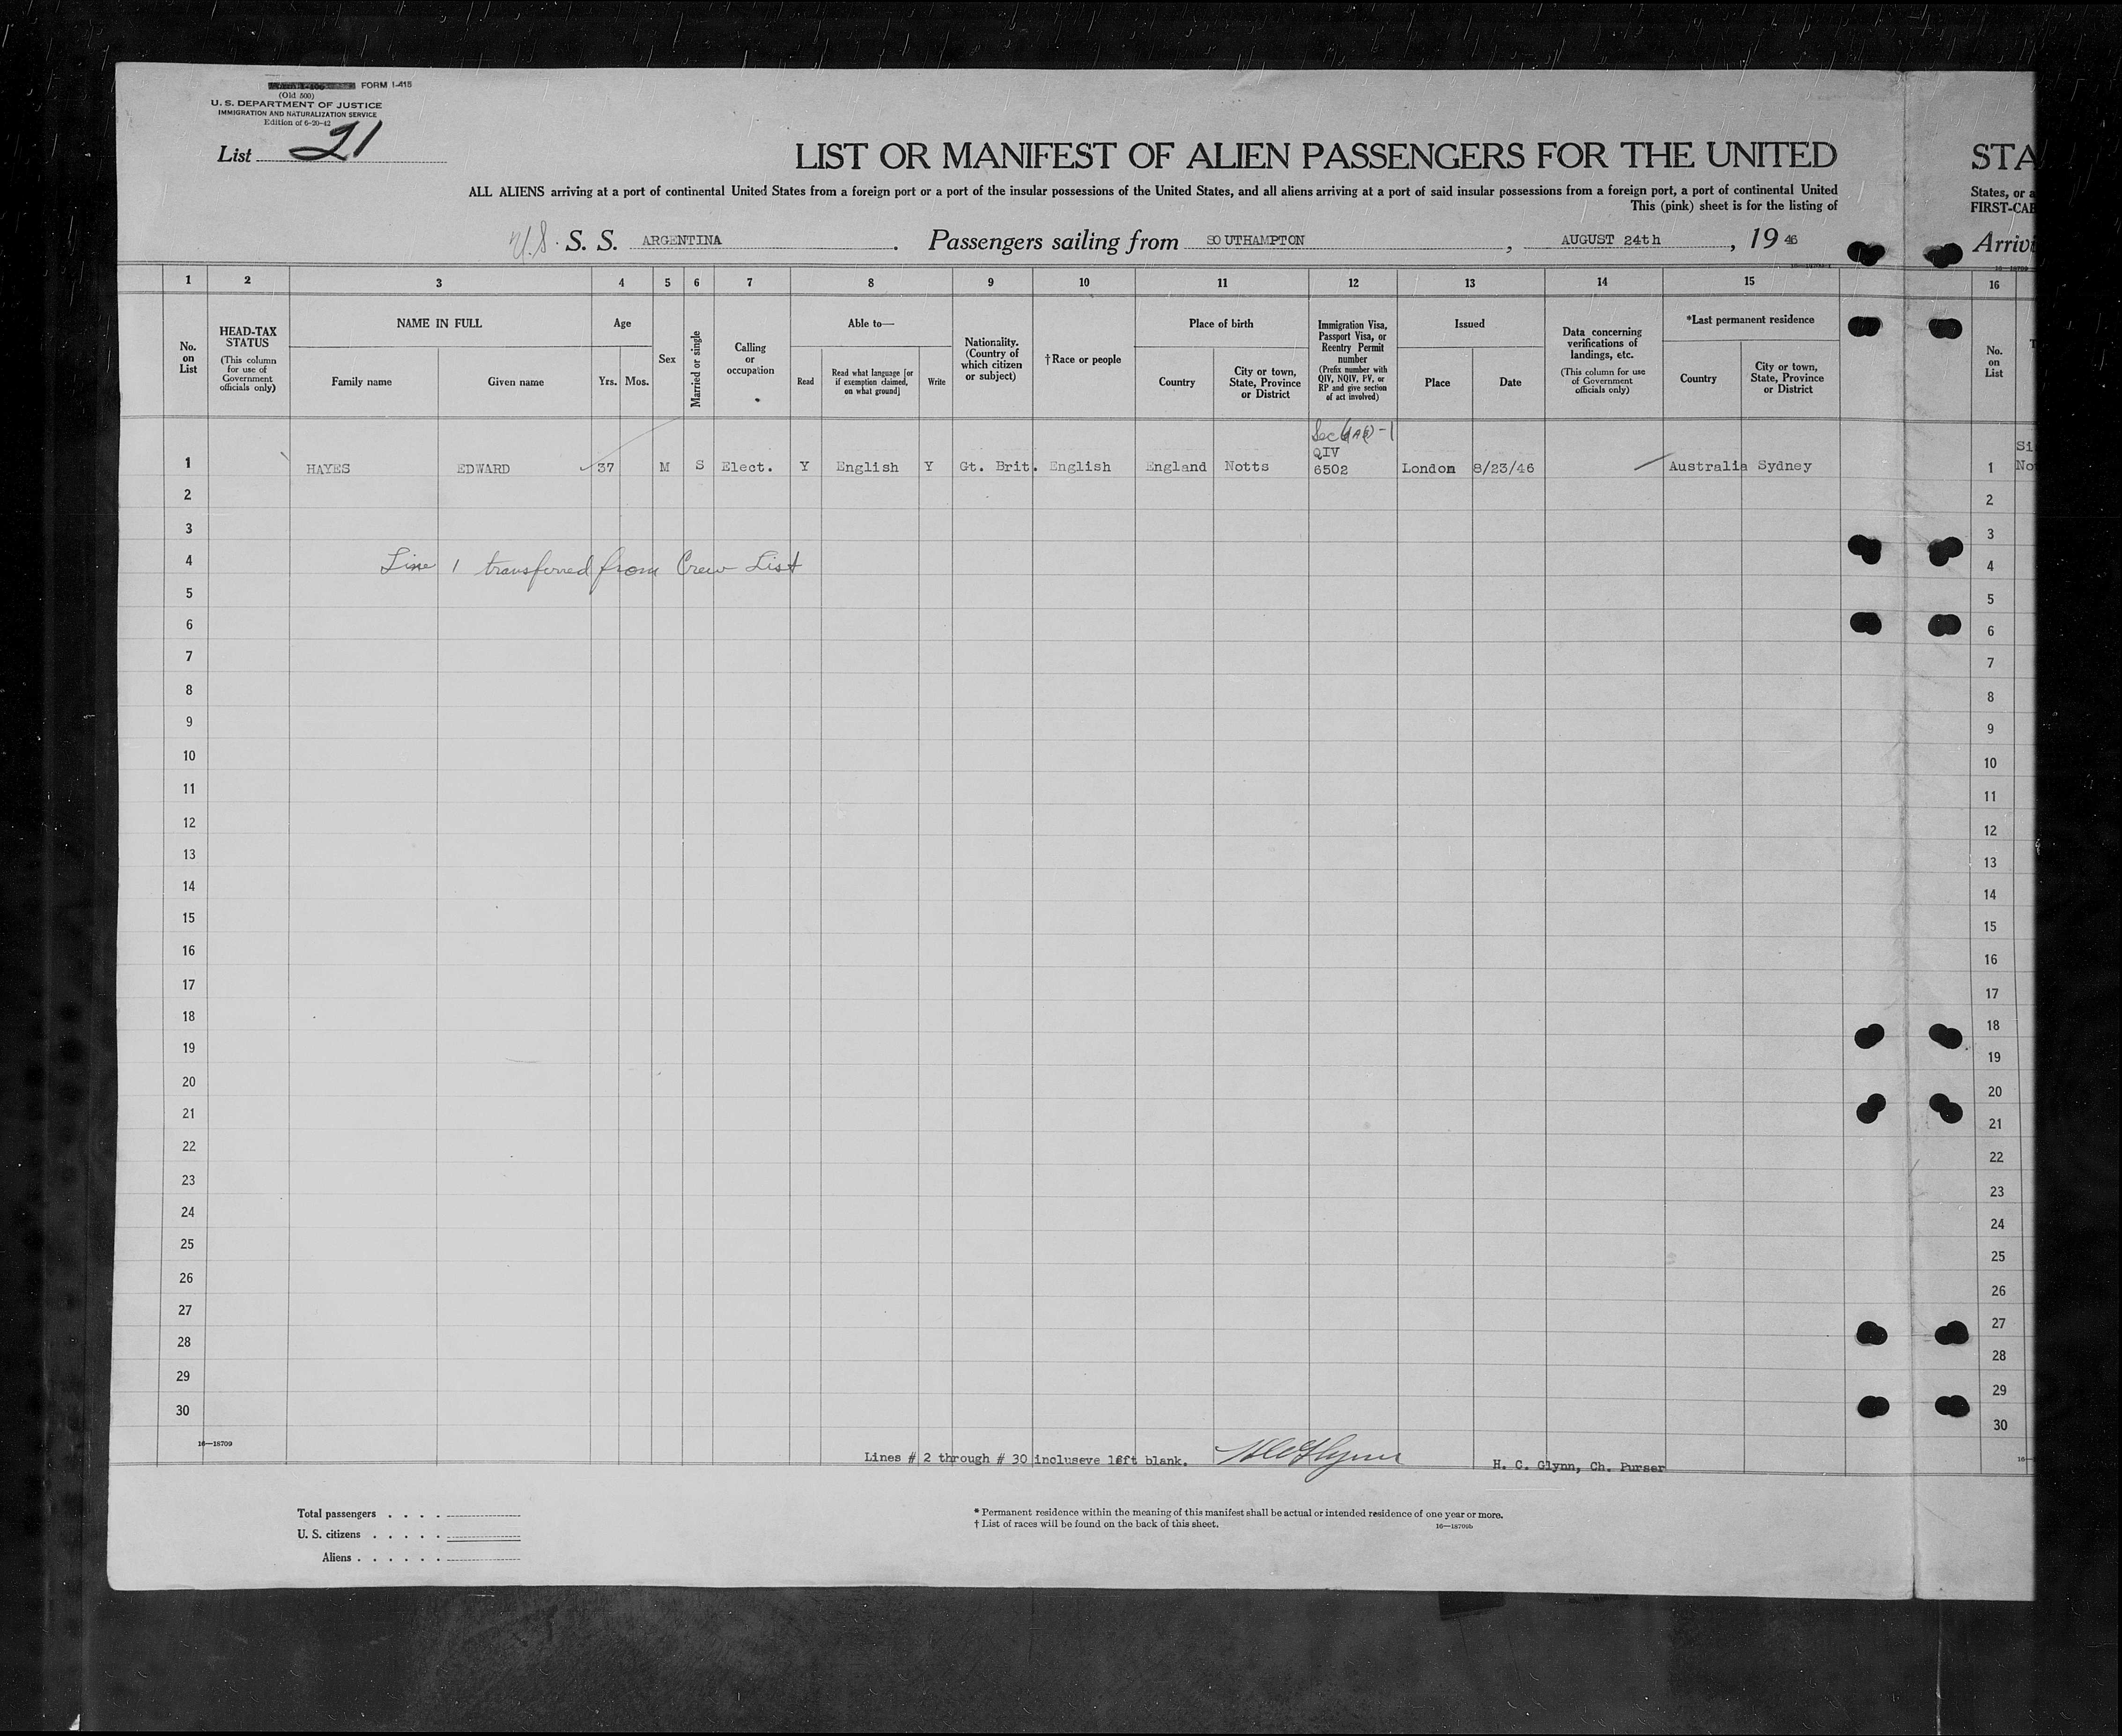 FORM I-415
(Old 500)
U. S. DEPARTMENT OF JUSTICE
IMMIGRATION AND NATURALIZATION SERVICE
Edition of 6-20-42
List 21
LIST OR MANIFEST OF ALIEN PASSENGERS FOR THE UNITED
ALL ALIENS arriving at a port of continental United States from a foreign port or a port of the insular possessions of the United States, and all aliens arriving at a port of said insular possessions from a foreign port, a port of continental United
This (pink) sheet is for the listing of
U.S. S. S. ARGENTINA . Passengers sailing from SOUTHAMPTON , AUGUST 24th , 19 46
STA
States, or a
FIRST-CAB
Arrivi
1 2 3 4 5 6 7 8 9 10 11 12 13 14 15 16
No. on List
HEAD-TAX STATUS
(This column for use of Government officials only)
NAME IN FULL
Family name
Given name
Age
Yrs. Mos.
Sex
Married or single
Calling or occupation
Able to—
Read
Read what language [or if exemption claimed, on what ground]
Write
Nationality. (Country of which citizen or subject)
†Race or people
Place of birth
Country
City or town, State, Province or District
Immigration Visa, Passport Visa, or Reentry Permit number
(Prefix number with QIV, NQIV, PV, or RP and give section of act involved)
Issued
Place
Date
Data concerning verifications of landings, etc.
(This column for use of Government officials only)
*Last permanent residence
Country
City or town, State, Province or District
No. on List
QIV
1 HAYES EDWARD 37 M S Elect. Y English Y Gt. Brit. English England Notts 6502 London 8/23/46 Australia Sydney 1 No
2 2
3 3
4 Line 1 transferred from Crew List 4
5 5
6 6
7 7
8 8
9 9
10 10
11 11
12 12
13 13
14 14
15 15
16 16
17 17
18 18
19 19
20 20
21 21
22 22
23 23
24 24
25 25
26 26
27 27
28 28
29 29
30 30
16—18709
Lines # 2 through # 30 incluseve left blank. H. C. Glynn, Ch. Purser
Total passengers
U. S. citizens
Aliens
* Permanent residence within the meaning of this manifest shall be actual or intended residence of one year or more.
† List of races will be found on the back of this sheet.
16—18709b